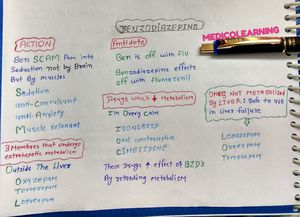 BENZODIAZEPINE
MEDICOLEARNING
ACTION
Ben SCAM Pam into
Seduction not by Brain
But By muscles
Sedation
anti-Convulsant
anti-Anxiety
Muscle relaxant
3 Members that undergo
extrahepatic metabolism
Outside The Liver
Oxazepam
Temazepam
Lorazepam
Antidote
Ben is off with flu
Benzodiazepine effects
off with flumazenil
Drugs which ↓ Metabolism
I'm Overly Calm
ISONIAZID
Oral contraceptive
CIMETIDINE
These Drugs ↑ effect of BZD's
By retarding metabolism
DRUGS NOT METABOLIZED
BY LIVER: Safe to use
in Liver failure
Lorazepam
Oxazepam
Temazepam